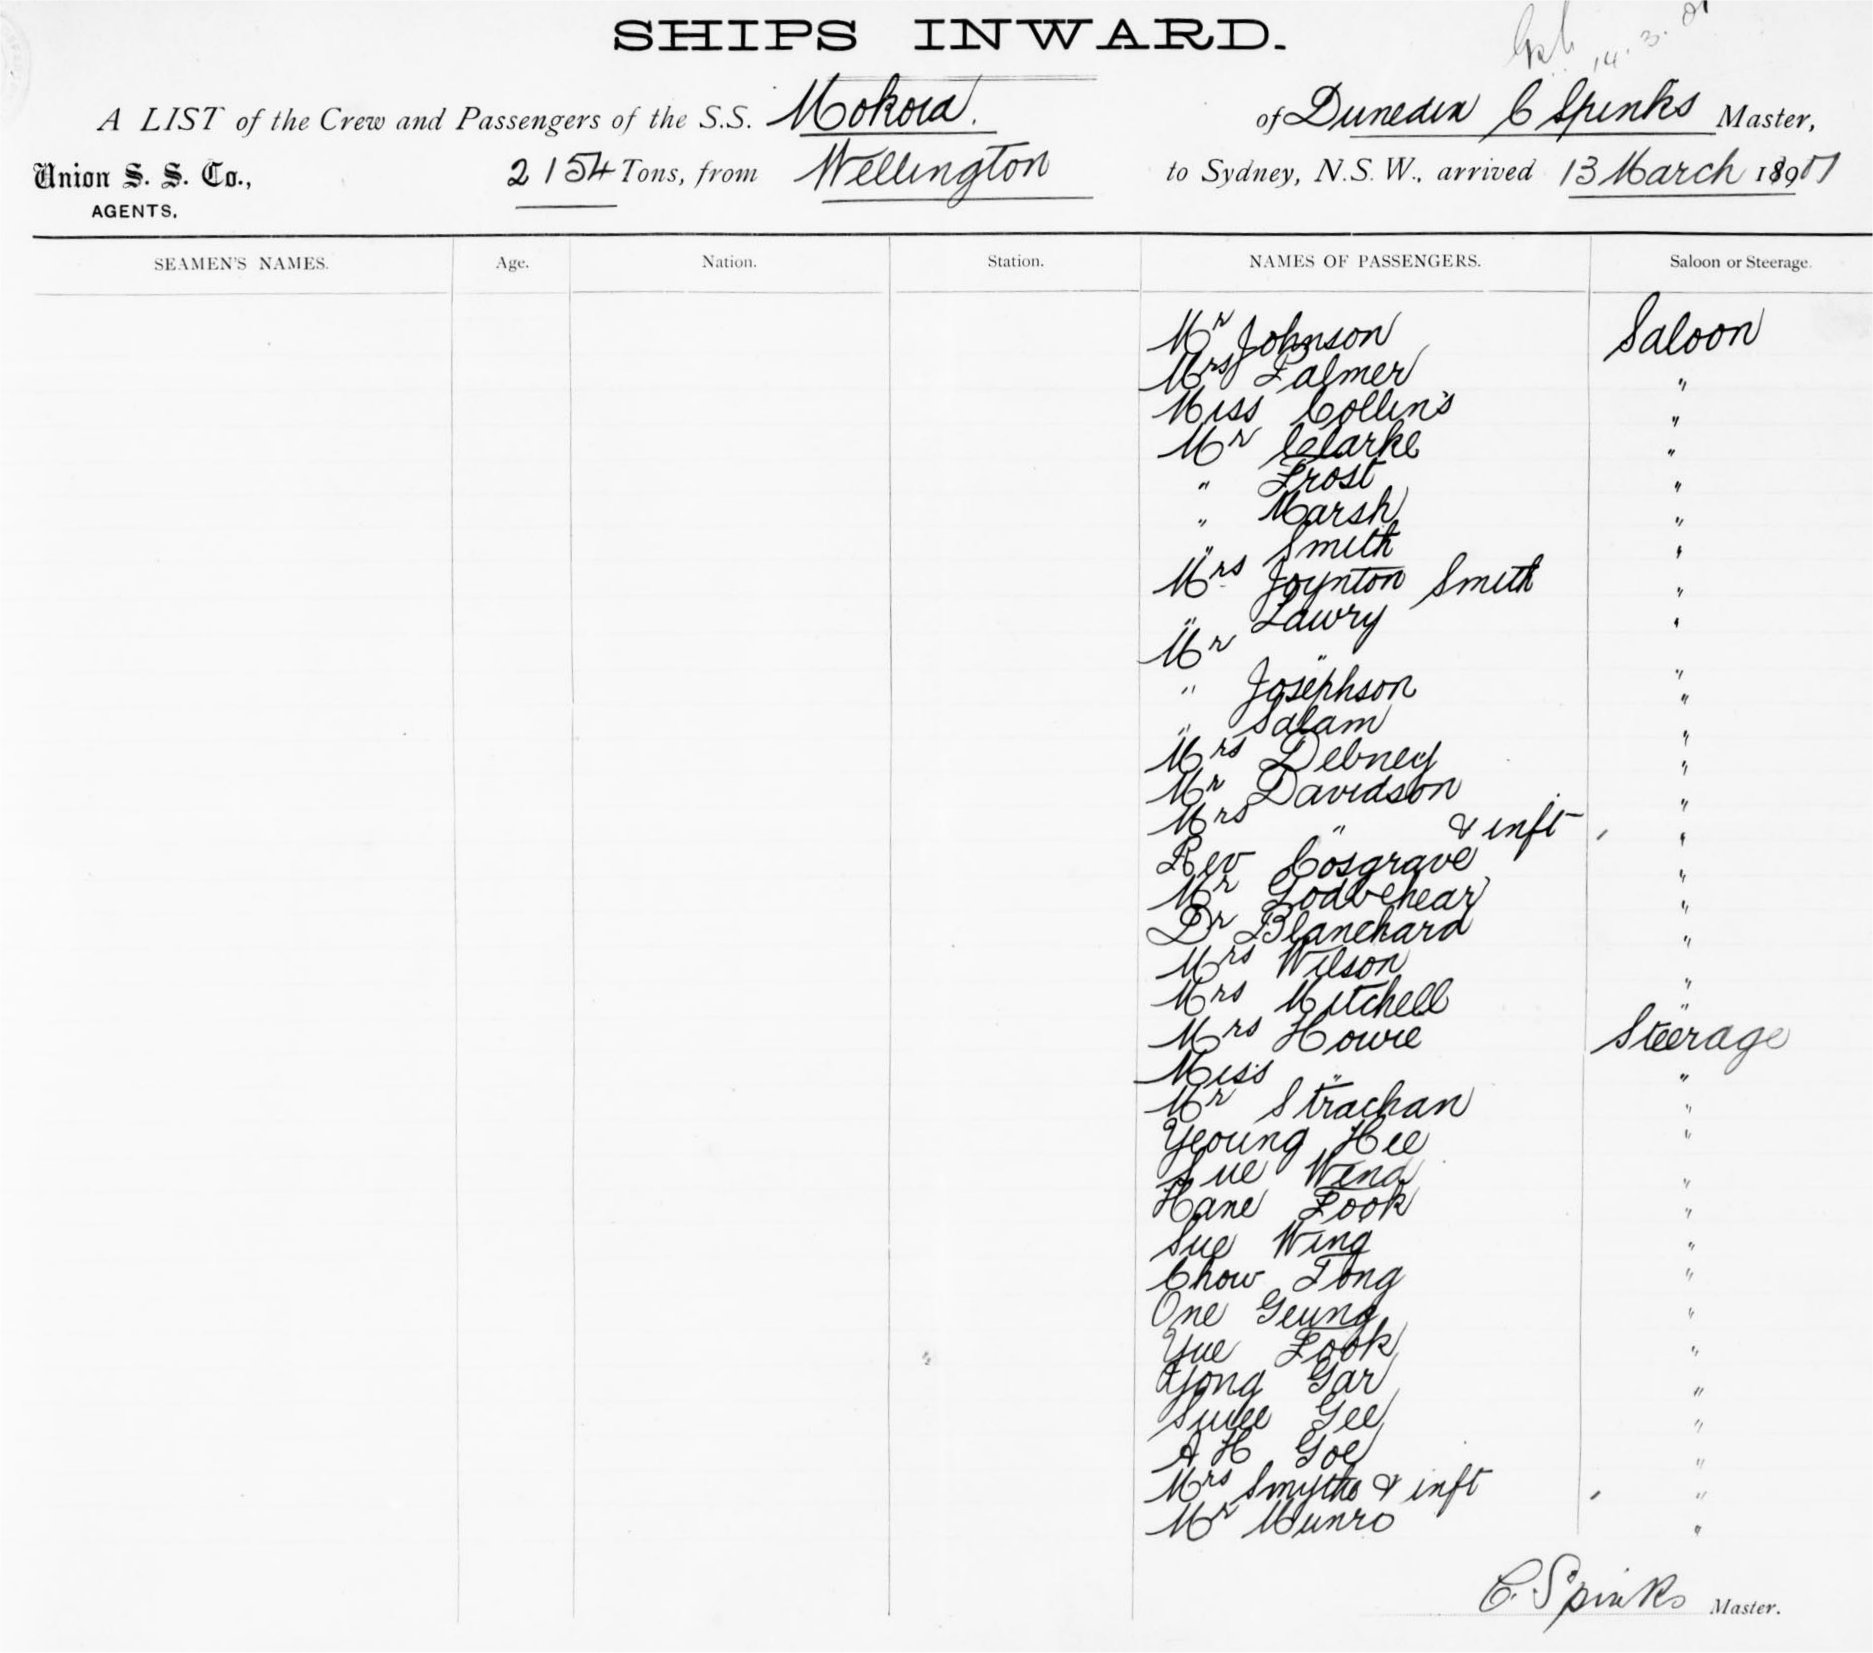 SHIPS INWARD.
14.3.01
A LIST of the Crew and Passengers of the S.S. Mokoia. of Dunedin C Spinks Master,
Union S. S. Co., AGENTS. 2154 Tons, from Wellington to Sydney, N.S.W., arrived 13 March 1901
SEAMEN'S NAMES. Age. Nation. Station. NAMES OF PASSENGERS. Saloon or Steerage.
Mr Johnson Saloon
Mrs Palmer "
Miss Collins "
Mr Clarke "
" Frost "
" Marsh "
" Smith "
Mrs Joynton Smith "
" Lawry "
Mr " "
" Josephson "
" Salam "
Mrs Debney "
Mr Davidson "
Mrs " & inft "
Rev Cosgrave "
Mr "
Dr Blanchard "
Mrs Wilson "
Mrs Mitchell "
Mrs Howie Steerage
Miss " "
Mr Strachan "
Yeoung Hee "
Sue Wing "
Hane Fook "
Sue Wing "
Chow Tong "
One Geung "
Yue Fook "
Yong Gar "
Suee Gee "
A H Goe "
Mrs Smythe & inft "
Mr Munro "
C. Spinks Master.